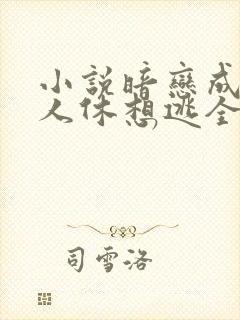 小説暗戀成
人休想逃全
司雪洛